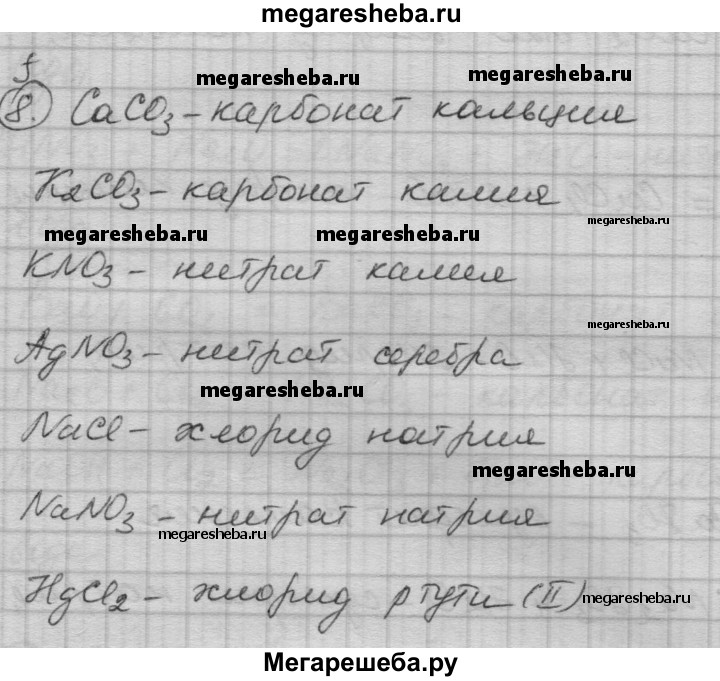 megaresheba.ru
f
megaresheba.ru
megaresheba.ru
8. CaCO3 - карбонат кальция
K2CO3 - карбонат калия
megaresheba.ru
megaresheba.ru
megaresheba.ru
KNO3 - нитрат калия
megaresheba.ru
AgNO3 - нитрат серебра
megaresheba.ru
NaCl - хлорид натрия
megaresheba.ru
NaNO3 - нитрат натрия
megaresheba.ru
HgCl2 - хлорид ртути (II)
megaresheba.ru
Мегарешеба.ру